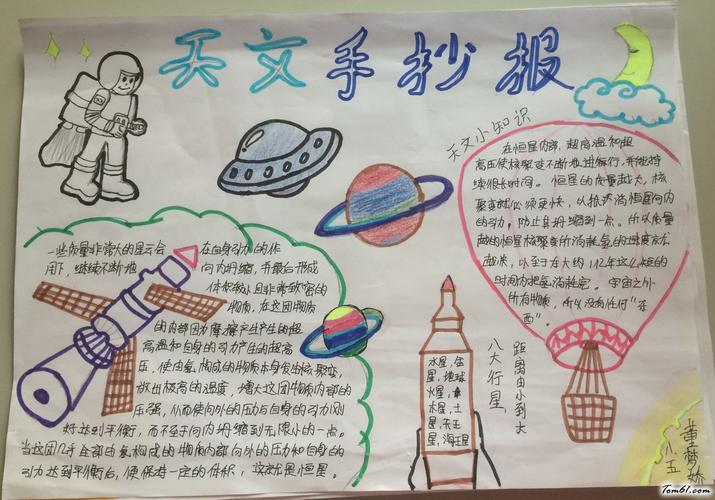 天文手抄报
天文小知识
在恒星内部,超高温和超
高压使核聚变不断地进行,并能持
续很长时间。恒星的质量越大,核
聚变就必须更快,以抵消恒星向内
的引力,防止其坍缩到一点。所以质量
越大的恒星核聚变所消耗氢的速度就
越快,以至于在大约
时间内把氢消耗完。宇宙之外
所有物质,所以没有任何“东
西”。
一些质量非常大的星云会
在自身引力的作
用下,继续不断地
向内坍缩,并最后形成
体积较小且非常致密的
物质,在这团物质
的内部因为摩擦产生产生的超
高温和自身的引力产生的超高
压,使由氢构成的物质本身发生核聚变,
放出极高的温度,增大这团物质内部的
压强,从而使向外的压力与自身的引力刚
好达到平衡,而不至于向内坍缩到无限小的一点。
当这团几乎全部由氢构成的物质内部向外的压力和自身的
引力达到平衡后,便保持一定的体积,这就是恒星。
水星,金
星,地球
火星,木
星,土
星,天王
星,海王星
八大行星
距离由小到大
小五
董梦娇
Tom61.com